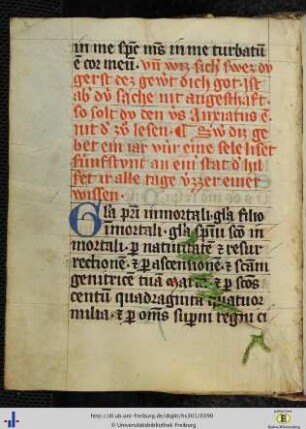 in me spc ms in me turbatū
ē cor meū. vn̄ wiz sich swez dv
gerst dez gew't dich got. ist
ab' dv sache nit angesthaft.
so solt dv den vs Anxiatus ē.
nit dᵉ zv̊ lesen. ¶ Sw diz ge
bet ein iar wúr eine sele liset
fúnfstvnt an ein stat d' hil
fet ir alle tage vzzer einer
wissen.
Gl'a pri inmortali. gl'a filio
imortali. gl'a spiui sco in
mortali. p natiuitatē ⁊ resur
rectionē. ⁊ p ascensionē. ⁊ scām
genitricē tuā mariā. ⁊ p scos
centum quadraginta quatuor
milia. ⁊ p om̄s supni regni ci
http://dl.ub.uni-freiburg.de/diglit/hs301/0390
© Universitätsbibliothek Freiburg
Baden-Württemberg